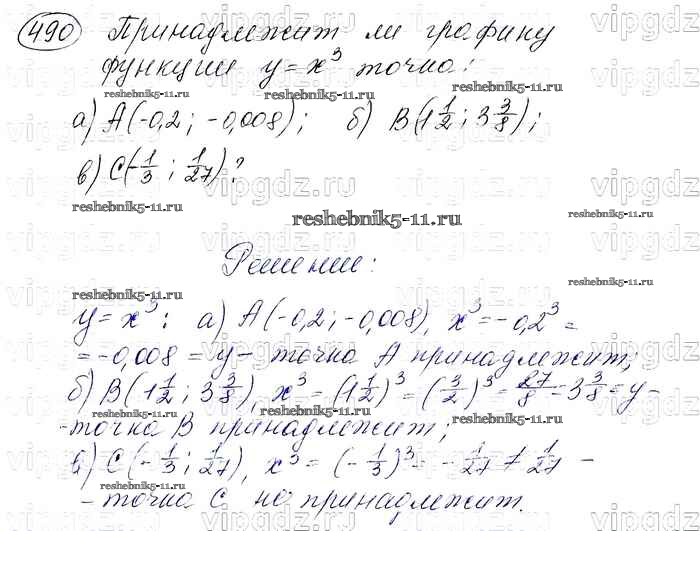 490 Принадлежит ли графику
функции y = x³ точка:
а) A(-0,2; -0,008); б) B(1 1/2; 3 3/8);
в) C(-1/3; 1/27)?
Решение:
y = x³: а) A(-0,2; -0,008), x³ = -0,2³ =
= -0,008 = y - точка A принадлежит;
б) B(1 1/2; 3 3/8), x³ = (1 1/2)³ = (3/2)³ = 27/8 = 3 3/8 = y -
- точка B принадлежит;
в) C(-1/3; 1/27), x³ = (-1/3)³ = -1/27 ≠ 1/27 -
- точка C не принадлежит.
reshebnik5-11.ru
vipgdz.ru